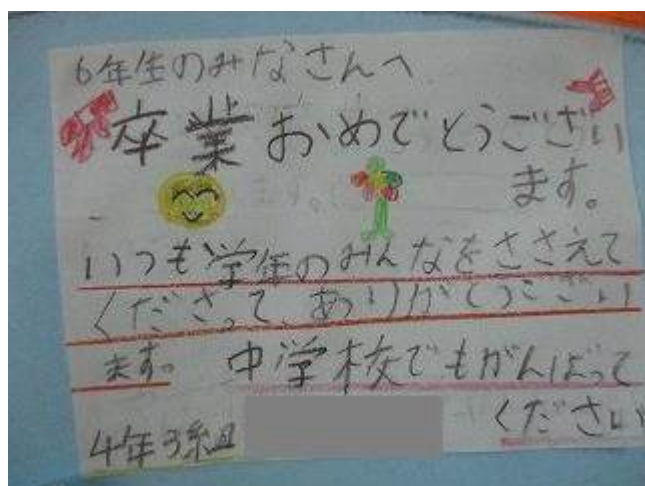 6年生のみなさんへ
卒業おめでとうござい
ます。
いつも学年のみんなをささえて
くださって、ありがとうござい
ます。 中学校でもがんばって
ください
4年3組